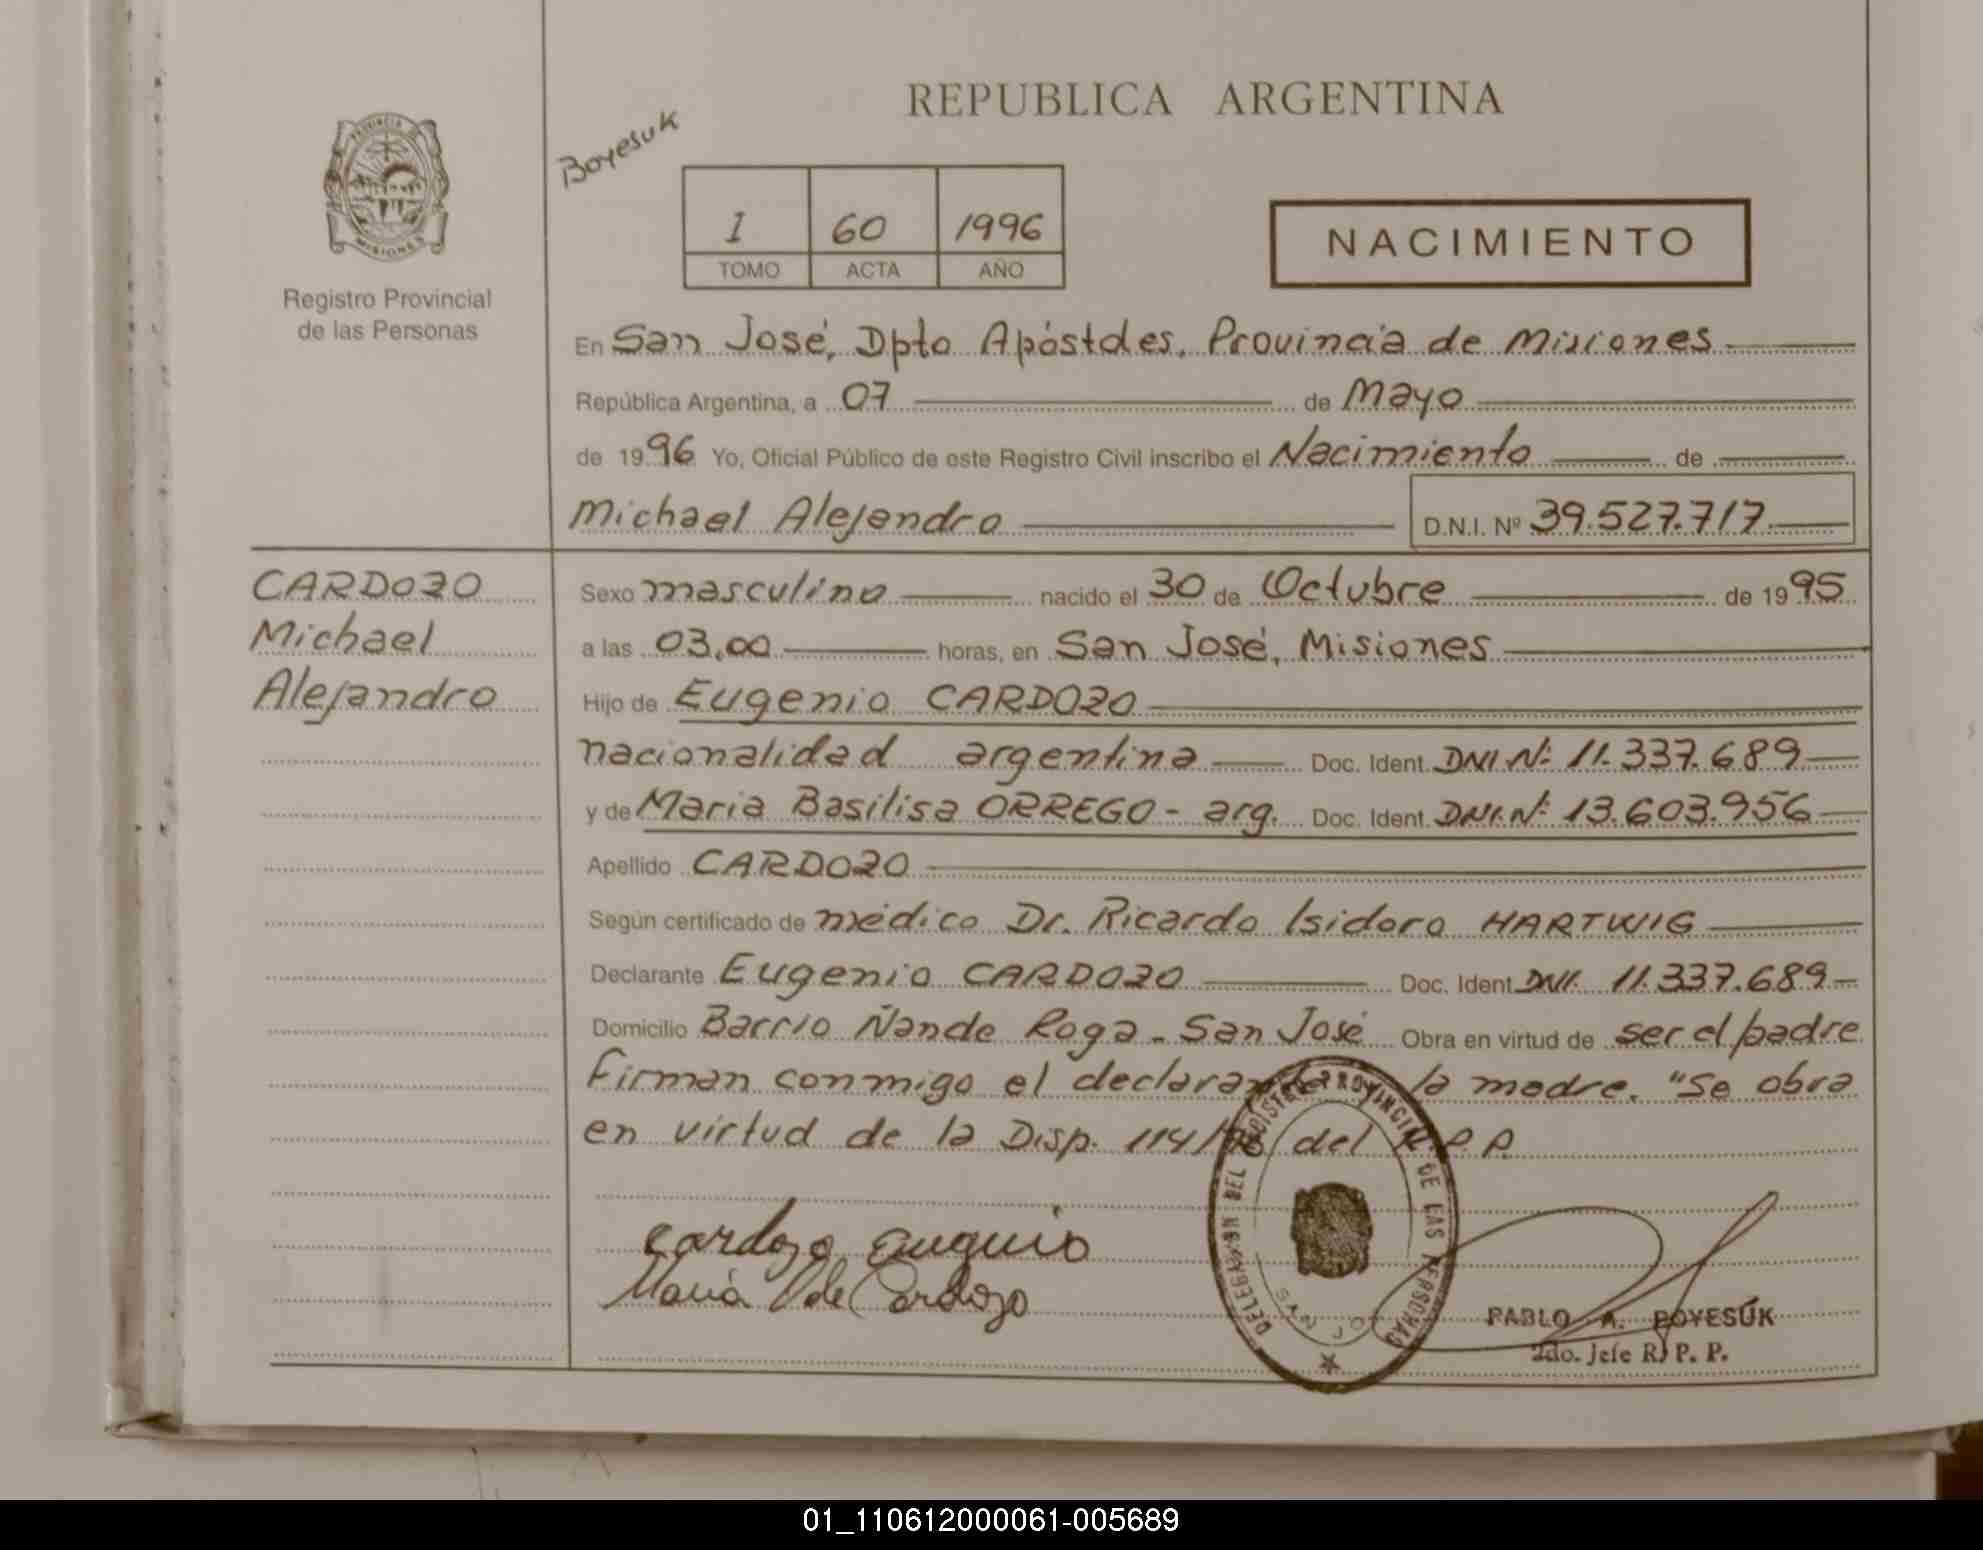 REPUBLICA ARGENTINA
Boyesuk
PROVINCIA DE
MISIONES
Registro Provincial
de las Personas
I 60 1996
TOMO ACTA AÑO
NACIMIENTO
En San José, Dpto Apóstoles, Provincia de Misiones
República Argentina, a 07 de Mayo
de 1996 Yo, Oficial Público de este Registro Civil inscribo el Nacimiento de
Michael Alejandro D.N.I. Nº 39.527.717
CARDOZO
Michael
Alejandro
Sexo masculino nacido el 30 de Octubre de 1995
a las 03,00 horas, en San José, Misiones
Hijo de Eugenio CARDOZO
nacionalidad argentina Doc. Ident. DNI.Nº 11.337.689
y de Maria Basilisa ORREGO - arg. Doc. Ident. DNI.Nº 13.603.956
Apellido CARDOZO
Según certificado de médico Dr. Ricardo Isidoro HARTWIG
Declarante Eugenio CARDOZO Doc. Ident DNI. 11.337.689
Domicilio Barrio Ñande Roga - San José Obra en virtud de ser el padre
Firman conmigo el declarante la madre. "Se obra
en virtud de la Disp. 114/ del R.P.P.
Cardozo Eugenio
Maria de Cardozo
DELEGACION DEL REGISTRO PROVINCIAL DE LAS PERSONAS
SAN JO
PABLO A. BOYESUK
2do. Jefe R. P. P.
01_110612000061-005689